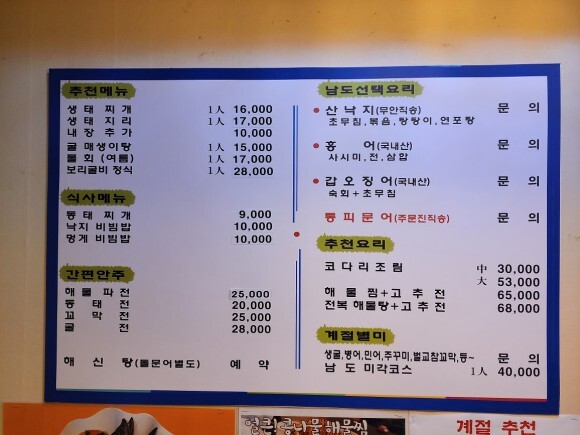 추천메뉴
생태찌개 1人 16,000
생태지리 1人 17,000
내장추가 10,000
굴매생이탕 1人 15,000
물회(여름) 1人 17,000
보리굴비정식 1人 28,000
식사메뉴
동태찌개 9,000
낙지비빔밥 10,000
멍게비빔밥 10,000
간편안주
해물파전 25,000
동태전 20,000
꼬막전 25,000
굴전 28,000
해신탕(돌문어별도) 예약
남도선택요리
산낙지(무안직송) 문의
초무침,볶음,탕탕이,연포탕
홍어(국내산) 문의
사시미,전,삼합
갑오징어(국내산) 문의
숙회+초무침
통피문어(주문진직송) 문의
추천요리
코다리조림 中 30,000
大 53,000
해물찜+고추전 65,000
전복해물탕+고추전 68,000
계절별미
생굴,병어,민어,주꾸미,벌교참꼬막,등~ 문의
남도미각코스 1人 40,000
얼큰콩나물해물찜
계절 추천